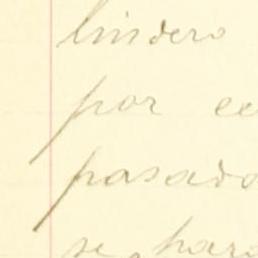 lindero
por
pasado
se hará